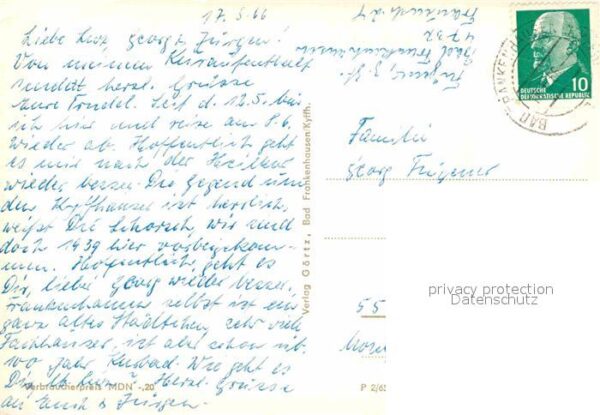 17.5.66
Liebe Luz, Georg & Jürgen!
Von meinem Kuraufenthalt
sendet herzl. Grüsse
Eure Trudel. Seit d. 12.5. bin
ich hier und reise am 8.6.
wieder ab. Hoffentlich geht
es mir nach der Heilkur
wieder besser. Die Gegend um
den Kyffhäuser ist herrlich,
weißt Du Schorsch, wir sind
doch 1939 hier vorbeigekom-
men. Hoffentlich geht es
Dir, lieber Georg wieder besser.
Frankenhausen selbst ist ein
ganz altes Städtchen, sehr viele
Fachhäuser, ist aber schon üb.
100 Jahr Kurbad. Wie geht es
Dir, lb. Herzl. Grüsse
an Euch & Jürgen.
Verbraucherpreis MDN -,20
Verlag Görtz, Bad Frankenhausen/Kyffh.
4732
Bad Frankenhausen
DEUTSCHE
DEMOKRATISCHE REPUBLIK
10
BAD FRANKENHAUSEN
Familie
Georg
55
P 2/65
privacy protection
Datenschutz